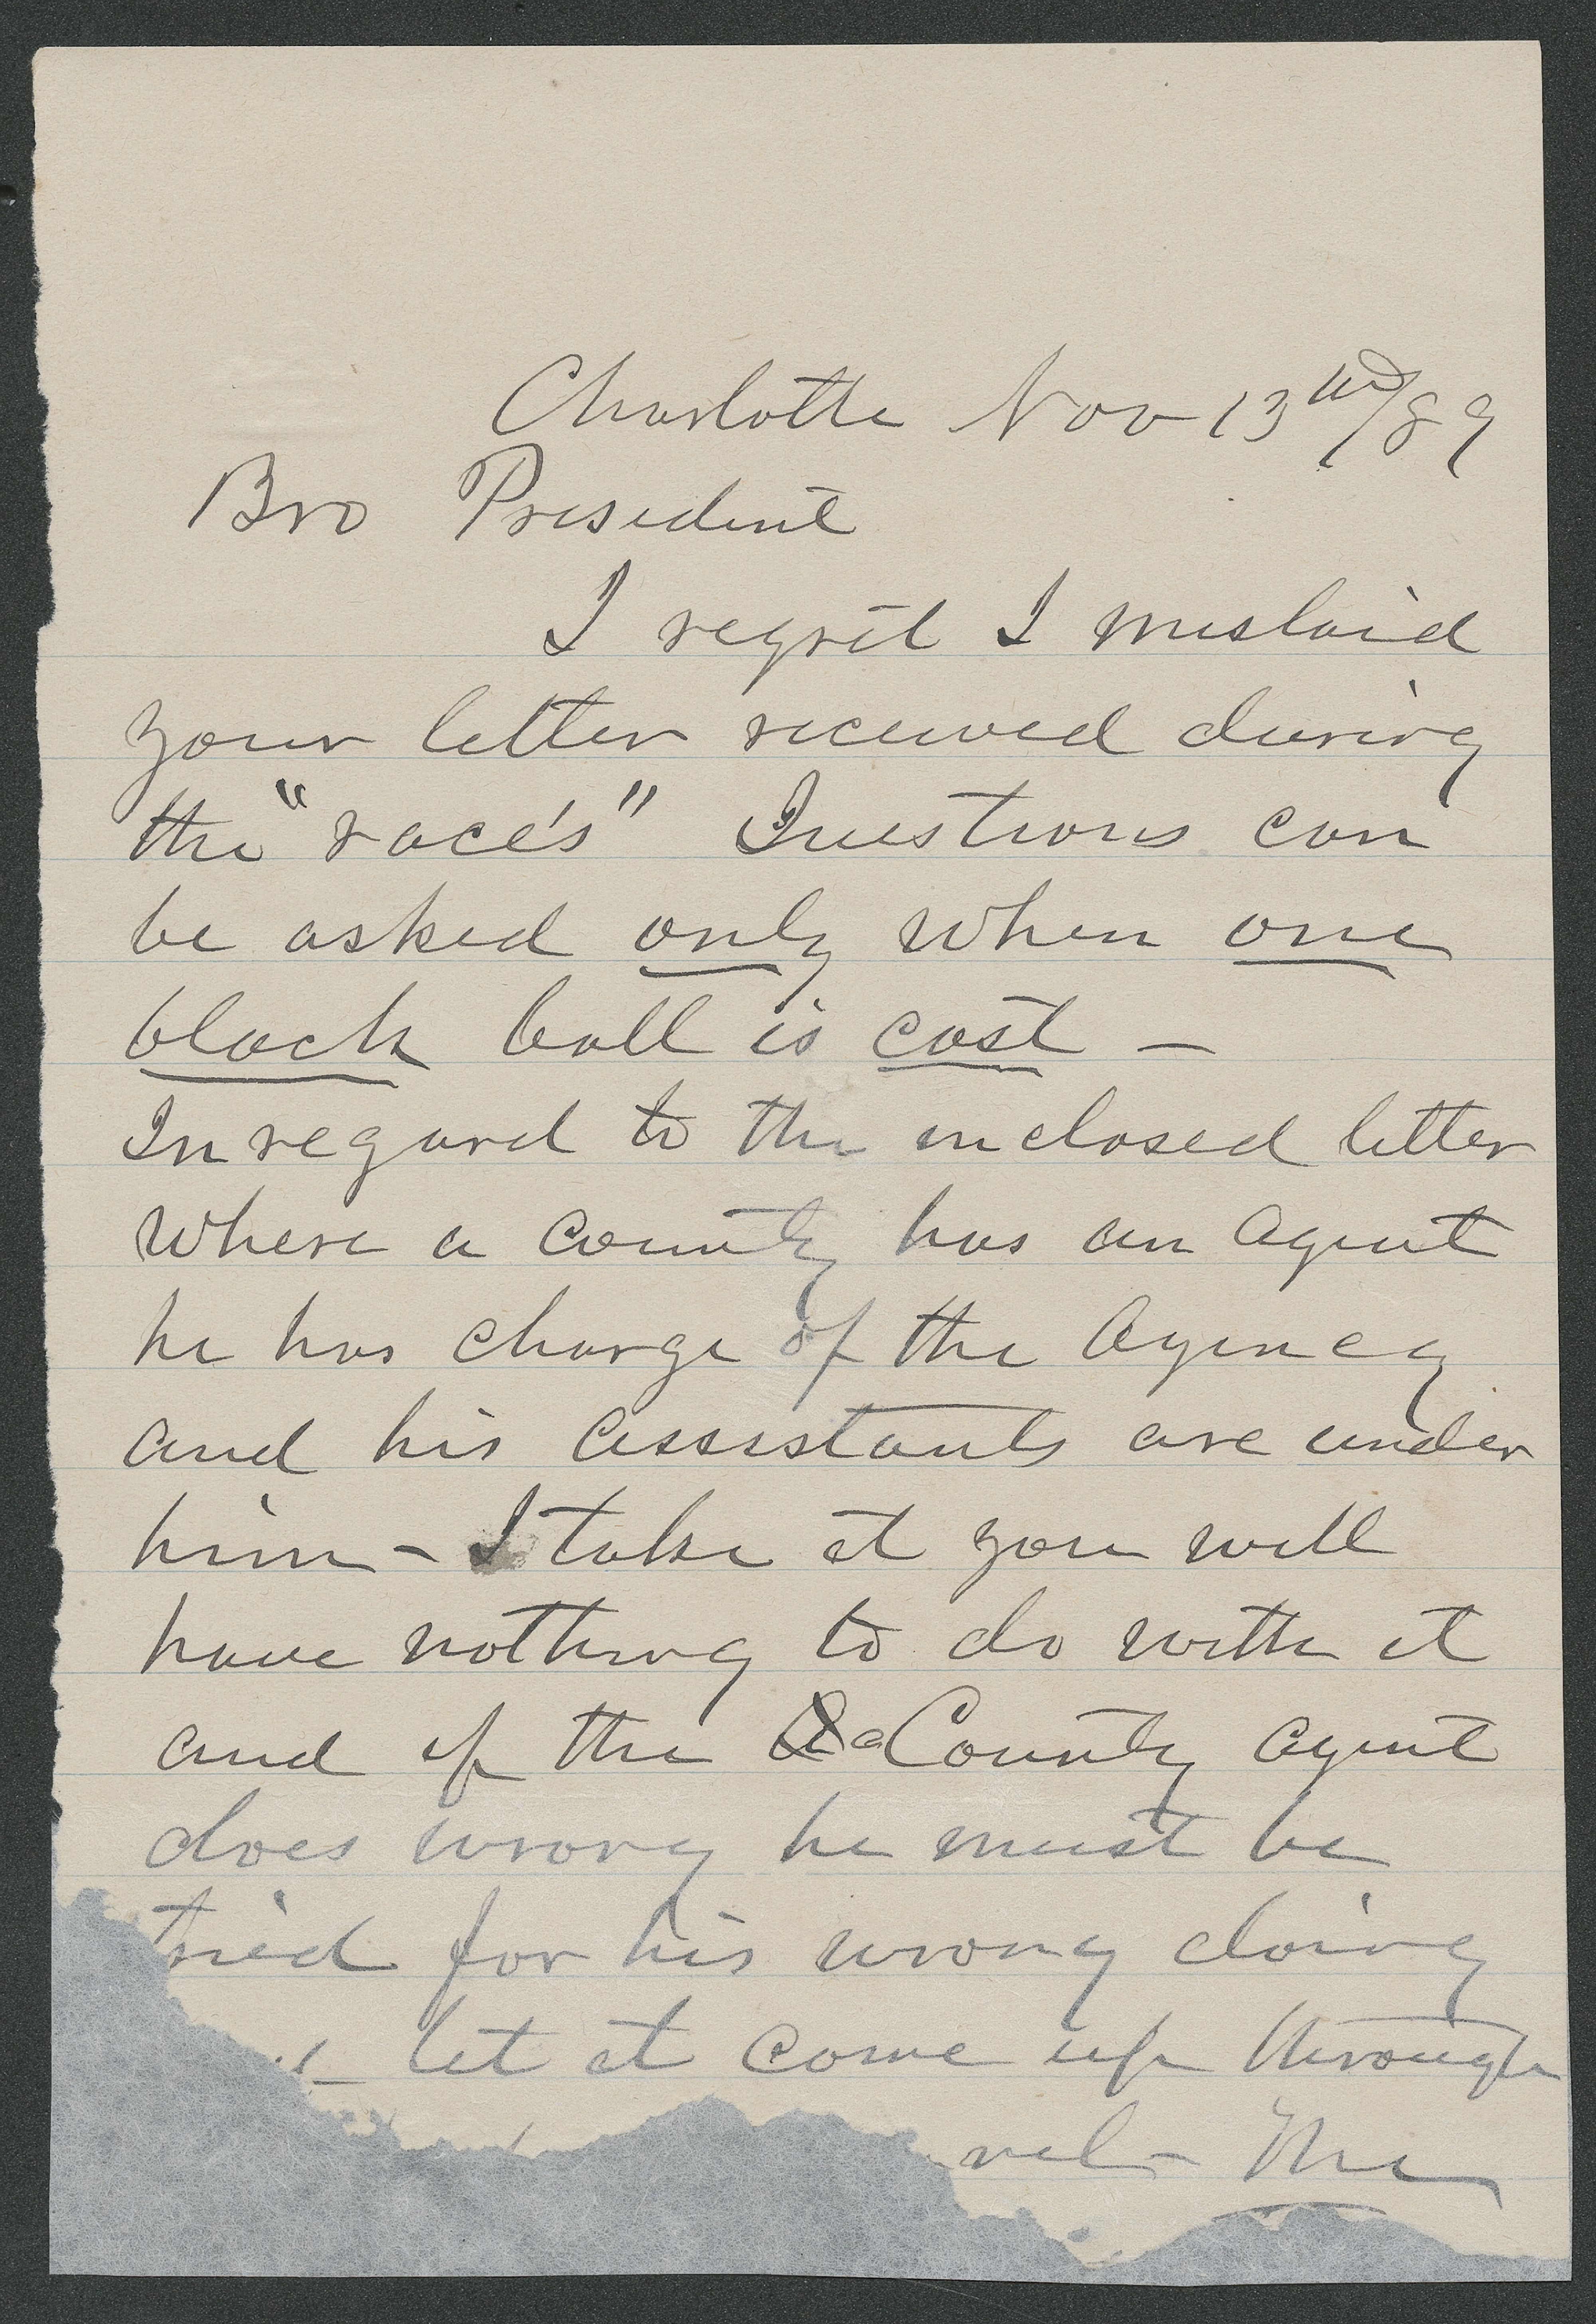 Charlotte Nov 13th/89
Bro President
I regret I mislaid
your letter received during
the "race's" Questions can
be asked only when one
black ball is cast —
In regard to the enclosed letter
where a county has an agent
he has charge of the Agency
and his assistants are under
him - I take it you will
have nothing to do with it
and if the County agent
does wrong he must be
tried for his wrong doing
let it come up through
The